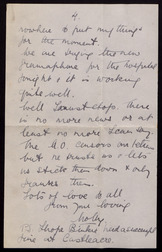 4.
nowhere to put my things
for the moment.
We are buying the new
gramaphone for the hospital
tonight & it is working
quite well.
Well Fanustchops. there
is no more news or at
least no more I can say
The M.O. censors our letters
but he trusts us & lets
us stick them down & only
franks them.
Lots of love to all
from your loving
Molly
I hope Bertie had a
out Castlecary.